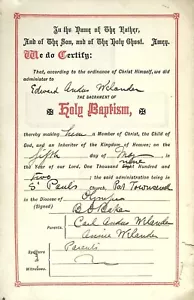 In the Name of The Father,
And of The Son, and of The Holy Ghost. Amen.
We do Certify:
That, according to the ordinance of Christ Himself, we did
administer to
Edward Andus Welander
THE SACRAMENT OF
Holy Baptism,
thereby making him a Member of Christ, the Child of
God, and an Inheritor of the Kingdom of Heaven; on the
fifth day of May in the
Year of our Lord, One Thousand Eight Hundred and nine
two the said administration being in
St Pauls Port Townsend
in the Diocese of Olympia
(Signed) B O Baker
Carl Andus Welander
Annie Welander
Parents